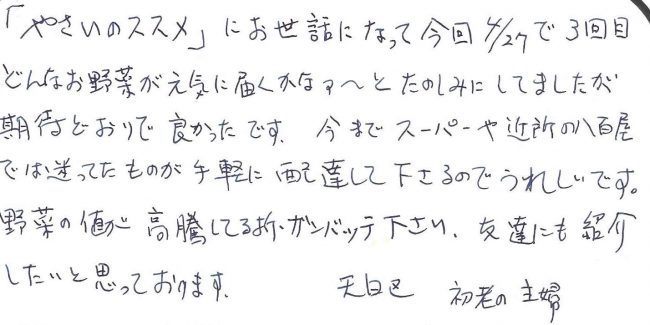 「やさいのススメ」にお世話になって今回4/27で3回目
どんなお野菜が元気に届くかなァ〜とたのしみにしてましたが
期待どおりで良かったです、今までスーパーや近所の八百屋
では迷ってたものが手軽に配達して下さるのでうれしいです。
野菜の値が高騰してる折、ガンバッテ下さい、友達にも紹介
したいと思っております、
天白区 初老の主婦